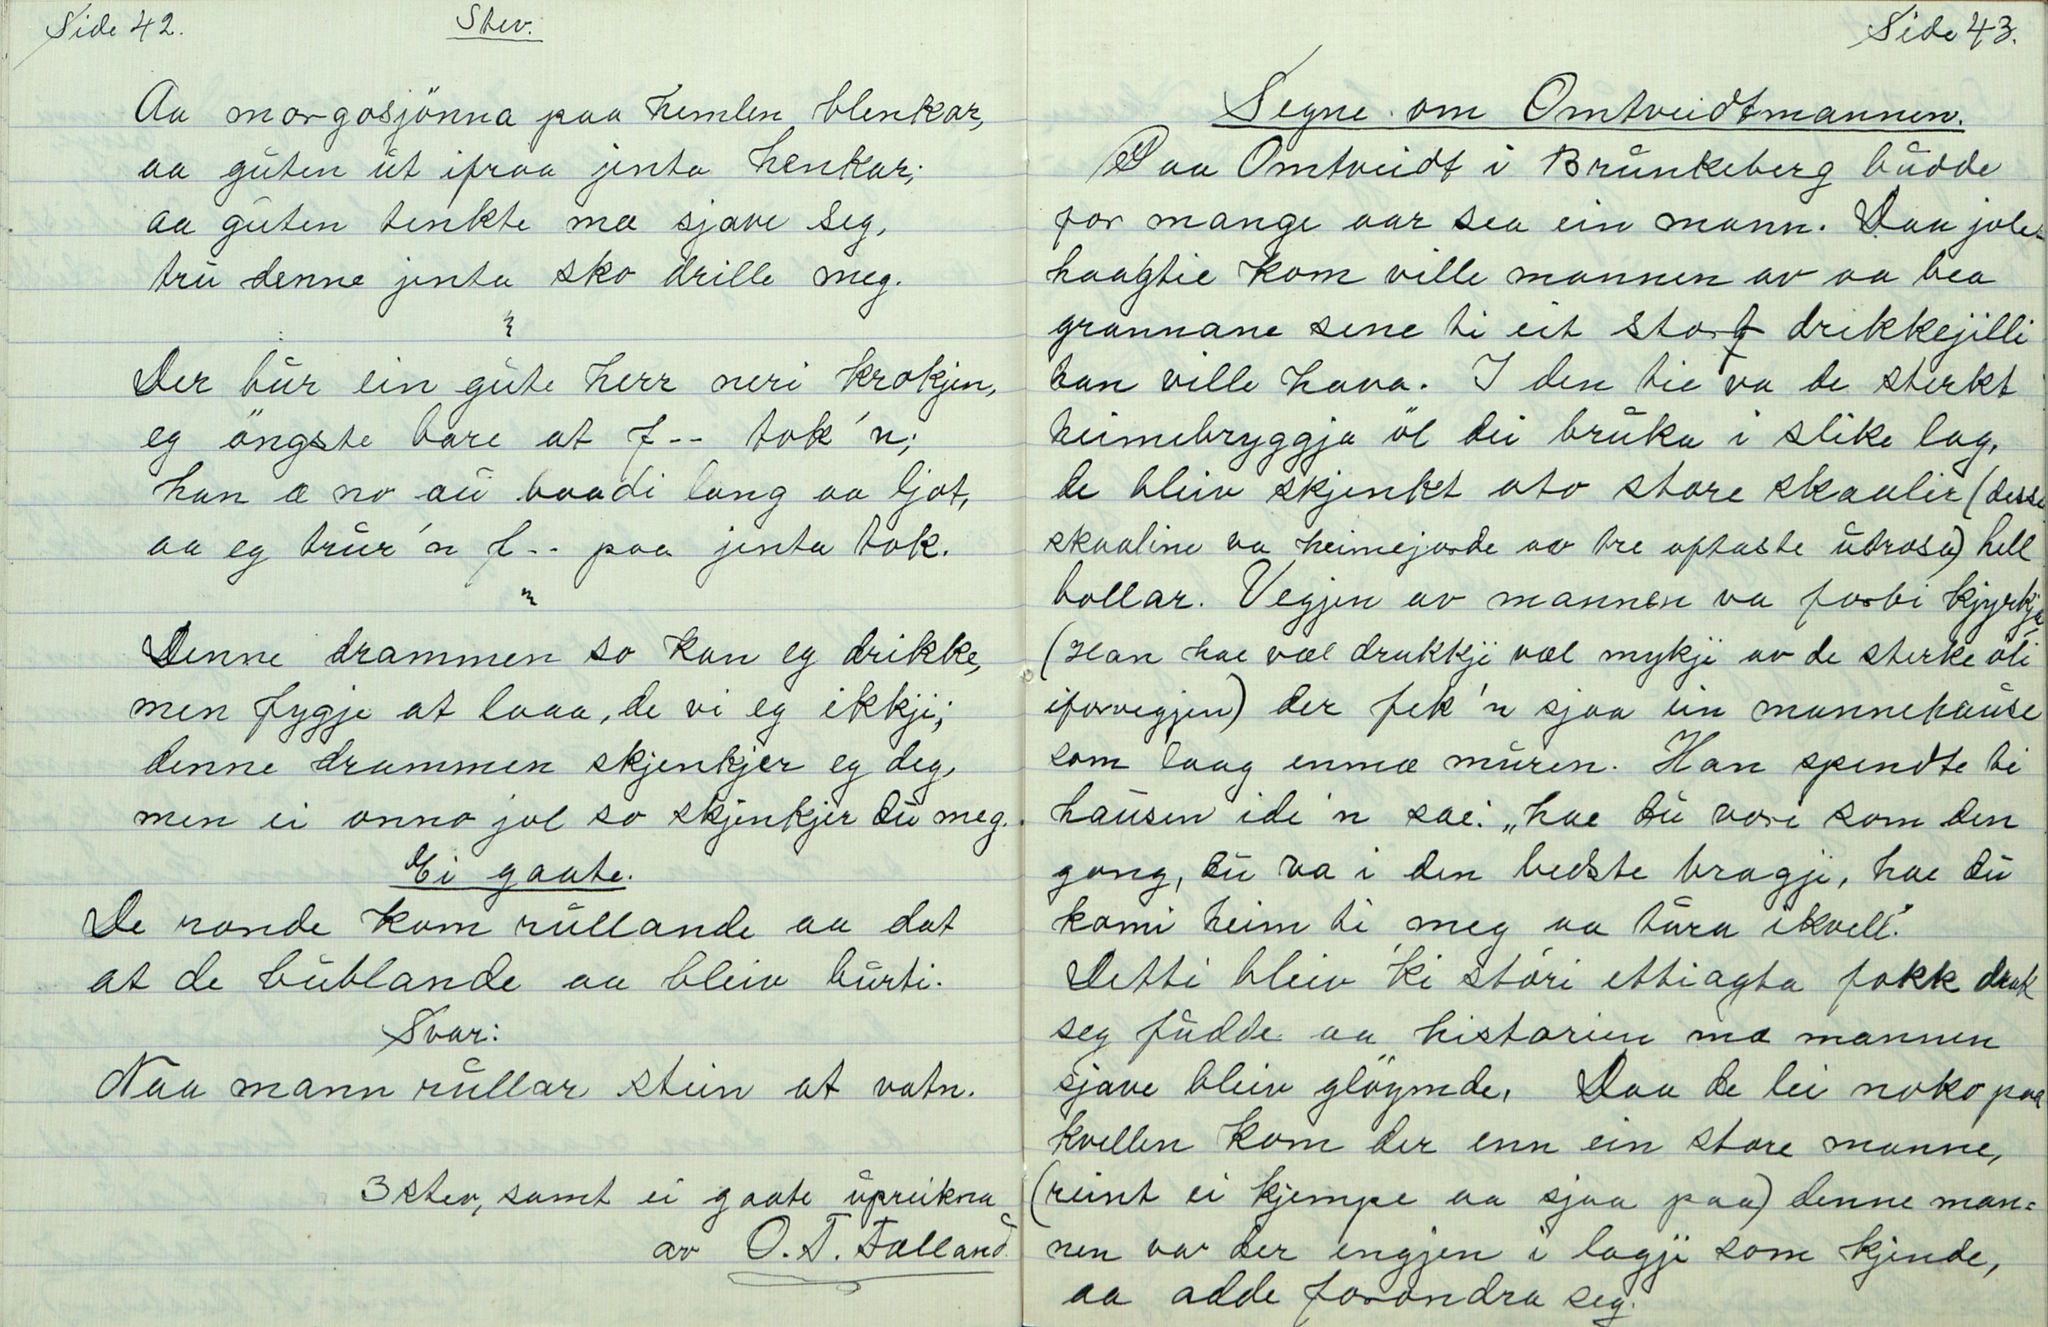 Side 42.
Stev.
Aa morgosjönna paa hemlen blenkar,
aa guten ut ifraa jenta henkar;
aa guten tenkte mæ sjave seg,
tru denne jenta sko drille meg.
Der bur ein gute herr neri krokjen,
eg öngste bare at f-- tok'n;
han æ no au baadi lang aa ljot,
aa eg trur'n f-- paa jenta tok.
Denne drammen so kan eg drikke,
men fygje at laaa, de vi eg ikkji;
denne drammen skjenkjer eg deg,
men ei anno jol so skjenkjer du meg.
Ei gaate.
De ronde kom rullande aa dat
at de bublande aa bleiv burti.
Svar:
Naa mann rullar stein at vatn.
3 stev, samt ei gaate upreikna
av O. T. Falland.
Side 43.
Segne om Omtveidtmannen.
Paa Omtveidt i Brunkeberg budde
for mange aar sea ein mann. Daa jole-
haagtie kom ville mannen av aa bea
grannane sine ti eit stort drikkejilli
han ville hava. I den tie va de sterkt
heimebryggja öl dei bruka i slike lag,
de bleiv skjenkt oto store skaalir (desse
skaaline va heimejorde av tre oftaste utrosa) hell
bollar. Vegjen av mannen va forbi kjyrkja
(Han hae væl drukkji væl mykji av de sterke öli
iforvegjen) der fek'n sjaa ein mannehause
som laag enmæ muren. Han spendte ti
hausen idi'n sae: „hae du vore som den
gong, du va i den bedste bragji, hae du
komi heim ti meg aa tura ikvell."
Detti bleiv 'ki stori ettiagta fokk drak
seg fudde aa historien mæ mannen
sjave bleiv glöymde. Daa de lei noko paa
kvellen kom der enn ein store manne,
(reint ei kjempe aa sjaa paa) denne man=
nen var der engjen i lagji som kjende,
aa adde forondra seg.